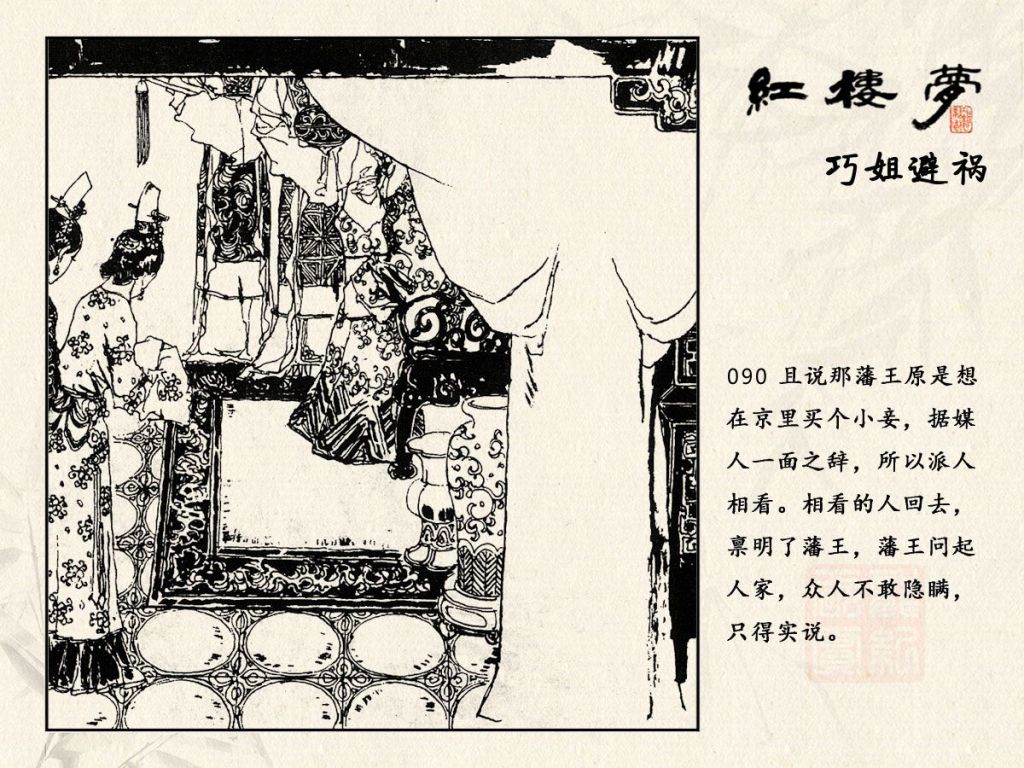 紅樓夢
巧姐避祸
090 且说那藩王原是想
在京里买个小妾，据媒
人一面之辞，所以派人
相看。相看的人回去，
禀明了藩王，藩王问起
人家，众人不敢隐瞒，
只得实说。